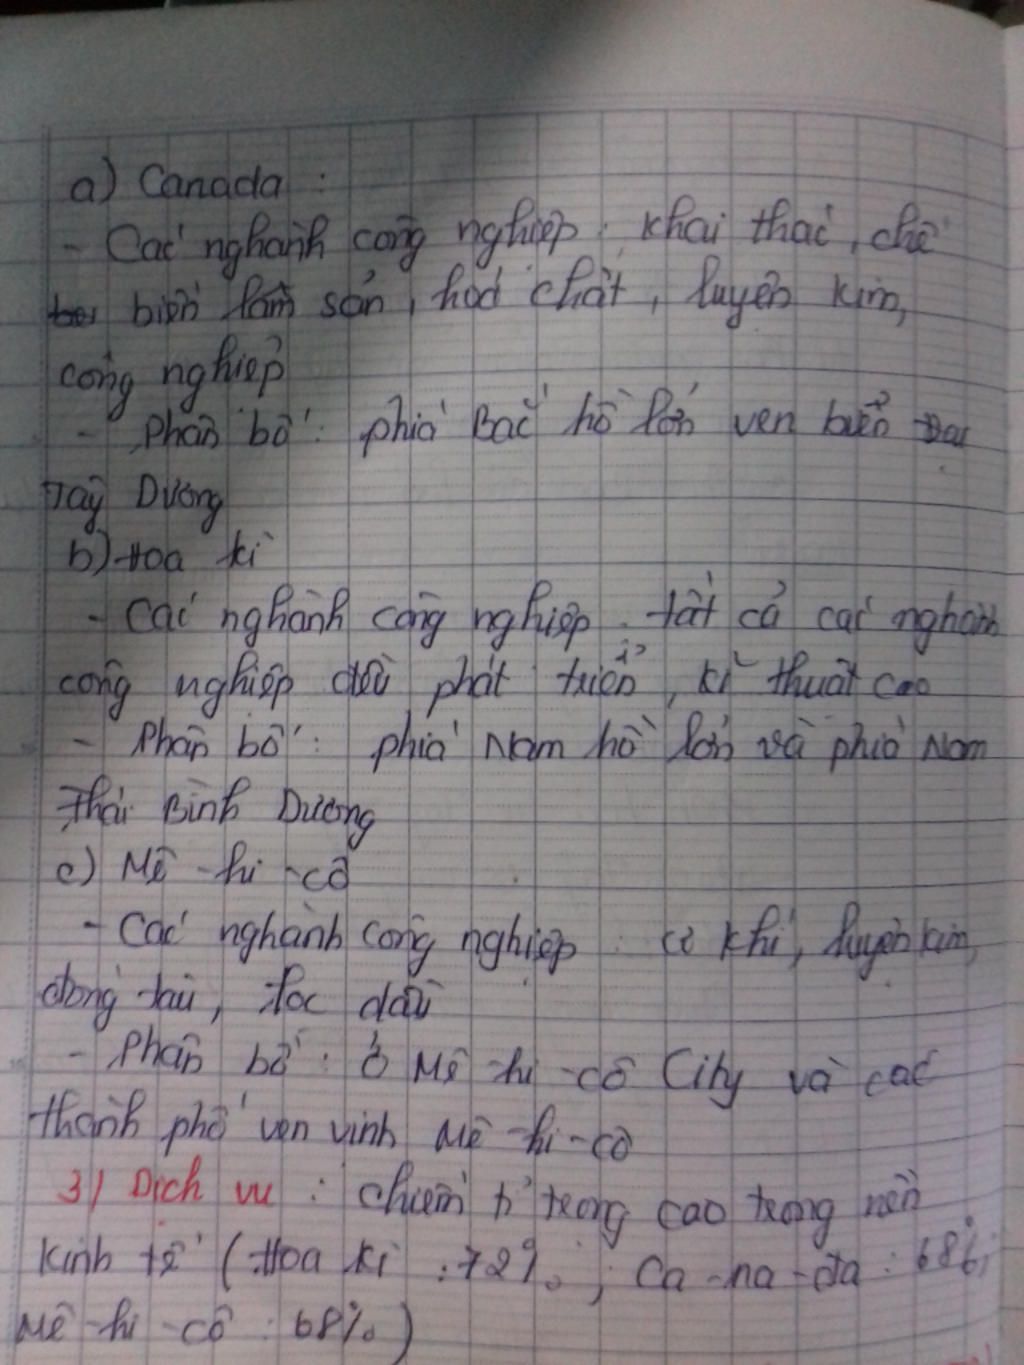 a) Canada :
- Các nghành công nghiệp : khai thác, chế
biến lâm sản, hoá chất, luyện kim,
công nghiệp
- Phân bố : phía Bắc hồ lớn ven biển Đại
Tây Dương
b) Hoa kì
- Các nghành công nghiệp : tất cả các nghành
công nghiệp đều phát triển, kĩ thuật cao
- Phân bố : phía Nam hồ lớn và phía Nam
Thái Bình Dương
c) Mê-hi-cô
- Các nghành công nghiệp : cơ khí, luyện kim,
đóng tàu, lọc dầu
- Phân bố : ở Mê-hi-cô City và các
thành phố ven vịnh Mê-hi-cô
3) Dịch vụ : chiếm tỉ trọng cao trong nền
kinh tế (Hoa kì : 72% ; Ca-na-đa : 68%;
Mê-hi-cô : 68%)